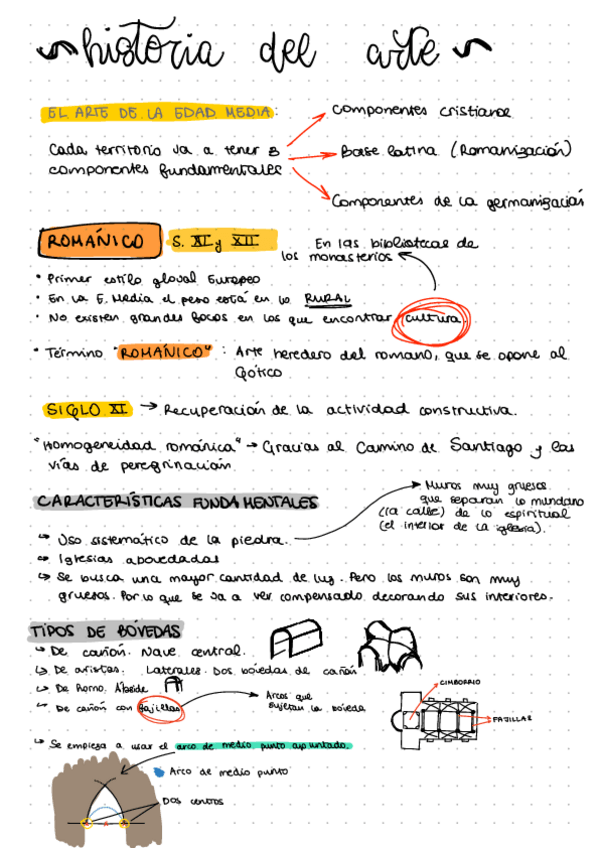 historia del arte
EL ARTE DE LA EDAD MEDIA:
Cada territorio va a tener 3
componentes fundamentales
Componentes cristianos
Base latina (Romanización)
Componentes de la germanización
ROMÁNICO
S. XI y XII
En las bibliotecas de
los monasterios
· Primer estilo gloval Europeo
· En la E. Media el peso está en lo RURAL
· No existen grandes focos en los que encontrar cultura.
· Término "ROMÁNICO": Arte heredero del romano, que se opone al
Gótico
SIGLO XI → Recuperación de la actividad constructiva.
"Homogeneidad románica" → Gracias al Camino de Santiago y las
vías de peregrinación.
CARACTERÍSTICAS FUNDAMENTALES
Muros muy gruesos
que separan lo mundano
(la calle) de lo espiritual
(el interior de la iglesia).
↪ Uso sistemático de la piedra.
↪ Iglesias abovedadas
↪ Se busca una mayor cantidad de luz. Pero los muros son muy
gruesos. Por lo que se va a ver compensado decorando sus interiores.
TIPOS DE BÓVEDAS
↪ De cañón. Nave central.
↪ De aristas. Laterales. Dos bóvedas de cañón
↪ De Horno. Ábside
↪ De cañón con fajillas
Arcos que
sujetan la bóveda
CIMBORRIO
FAJILLAS
↪ Se empieza a usar el arco de medio punto apuntado.
Arco de medio punto
Dos centros